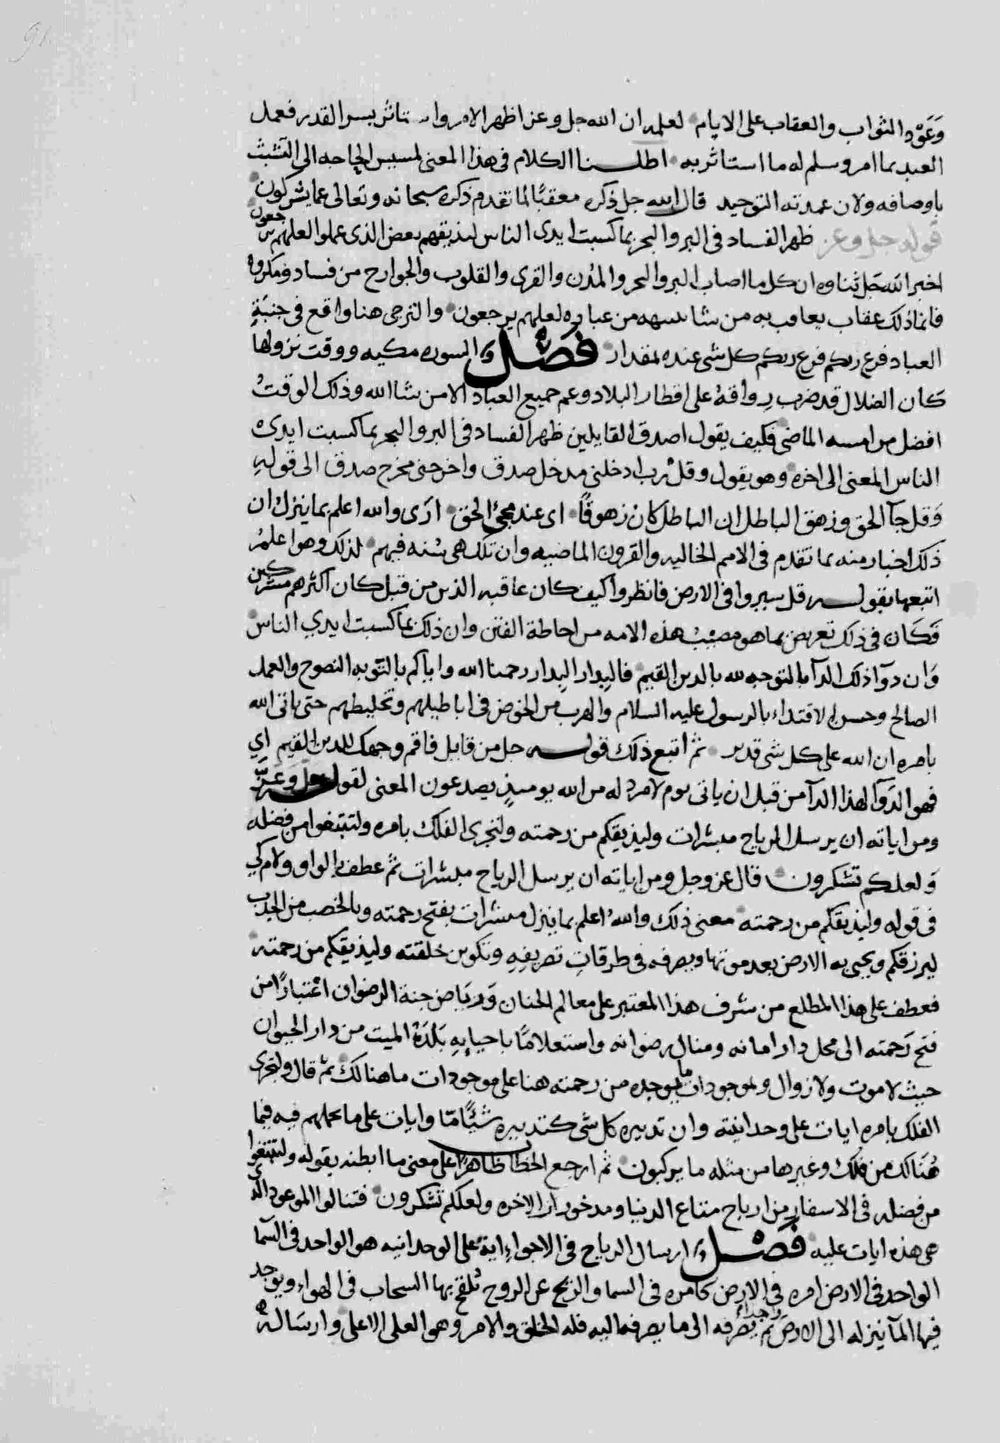 وعَوْد الثواب والعقاب على الايام لعلمه ان الله جل وعز اظهر الامر واستاثر بسر القدر فعمل
العبد بما امر وسلم له ما استاثر به اطلنا الكلام فى هذا المعنى لمسيس الحاجه الى التشبث
باوصافه ولان عمدته التوحيد قال الله جل ذكره معقبًا لما تقدم ذكره سبحانه وتعالى عما يشركون
قوله جل وعز ظهر الفساد فى البر والبحر بما كسبت ايدى الناس ليذيقهم بعض الذى عملوا لعلهم يرجعون
اخبر الله جَل ثناوه ان كل ما اصاب البر والبحر والمُدن والقرى والقلوب والجوارح من فساد ومكروه
فانما ذلك عقاب يعاقب به من شا من عباده لعلهم يرجعون والترجى هنا واقع فى جنبَةِ
العباد فرغ ربكم فرغ ربكم كل شى عنده بمقدار فصْل السوره مكيه ووقت نزولها
كان الضلال قد ضرب رِواقهُ على اقطار البلاد وعم جميع العباد الا من شا الله وذلك الوقتُ
افضل من امسه الماضى فكيف يقول اصدق القايلين ظهر الفساد فى البر والبحر بما كسبت ايدى
الناس المعنى الى اخره وهو يقول وقل رب ادخلنى مدخل صدق واخرجنى مخرج صدق الى قولهِ
وَقل جآ الحق وزهق الباطل ان الباطل كان زهوقًا اى عند مجئ الحق ارَى والله اعلم بما ينزل ان
ذلك اخبار منه بما تقدم فى الامم الخاليه والقرون الماضيه وان تلك هى سُنته فيهم لذلك وهو اعلمُ
اتبعها بقوله قل سيروا فى الارض فانظروا كيف كان عاقبه الذين من قبل كان اكثرهم مشركين
فكَان فى ذلك تعريض بما هو مصيبُ هذه الامه من احاطة الفتن وان ذلك بما كسبت ايدي الناس
وَان دوآ ذلك الدآ بالتوجه لله بالدين القيم فالبِدار البِدار رحمنا الله واياكم بالتوبه النصوح والعمل
الصالح وحسن الاقتداء بالرسول عليه السلام والهرب من الخوض فى اباطيلهم وتخليطهم حتى ياتى الله
بامره ان الله على كل شى قدير ثمّ اتبع ذلك قوله جل من قايل فاقم وجهك للدين القيم اي
فهو الدَوآ لهذا الدآ من قبل ان ياتى يوم لا مرد له من الله يوميذٍ يصدعون المعنى لقوله جلّ وعَزّ
ومن اياته ان يرسل الرياح مبشرات وليذيقكم من رحمته ولتجرى الفلك بامره ولتبتغوا من فضله
وَلعلكم تشكرون قال عز وجل ومن اياته ان يرسل الرياح مبشرات ثمّ عطف بالواو ولام كي
فى قوله وليذيقكم من رحمته معنى ذلك والله اعلم بما ينزل مبشرات بفتح رحمته وبالخصب من الجدب
ليرزقكم ويحيى به الارض بعد موتها ويصرفه فى طرقاتِ تصريفِهِ وتكوين خلقته وليذيقكم من رحمته
فعطف على هذا المطلع من شرف هذا المعتبر على معالم الجنان وَرياض جنة الرضوان اعتبارًا من
فتح رَحمته الى محل دار امانه ومنال رضوانه واستعلامًا باحيايهِ بَلدَةَ الميت من دار الحيوان
حيث لا موت ولا زوال ولموجودات ما يوجده من رحمته هنا على موجودات ما هنالك ثمّ قال ولتجرى
الفلك بامره ايات على وحدانيته وان تدبيره كل شى كتدبيره شيئًا مّا وايات على ما يحملهم فيه فيما
هُنالك من فُلك وغيرها من مثله ما يركبون ثمّ ارجع الخطاب ظاهرًا على معنى ما ابطنه بقوله ولتبتغوا
من فضله فى الاسفار من ارباح متاع الدنيا ومدخور دار الاخره ولعلكم تشكرون فتنالوا الموعود الذى
هى هذه ايات عليه فصْل ارسال الرياح فى الاجواءِ اية على الوحدانيه هو الواحد فى السمآ
الواحد فى الارض امره فى الارض كامره فى السما والريح عن الروح تُلقح بها السحاب فى الهواءِ ويوجد
فيها المآ ينزله الى الارض ثم يصرفه الى ما يصرفه اليه فله الخلق والامر وهو العلى الاعلى وارسَاله